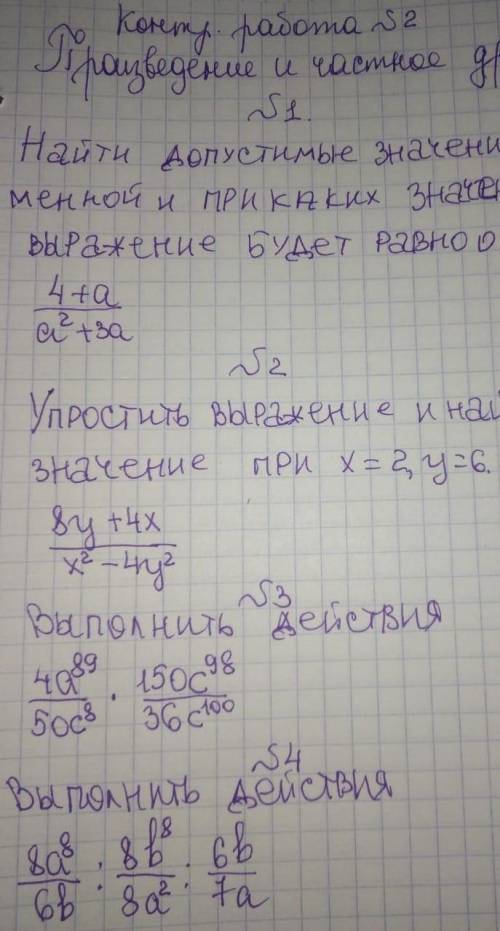 Контр. работа №2
Произведение и частное др
№1.
Найти допустимые значени
менной и при каких значен
выражение будет равно 0
(4+a)/(a²+3a)
№2
Упростить выражение и най
значение при x=2, y=6.
(8y+4x)/(x²-4y²)
№3
Выполнить действия
4a⁸⁹/50c⁸ · 150c⁹⁸/36c¹⁰⁰
№4
Выполнить действия
8a⁸/6b : 8b⁸/8a² : 6b/7a